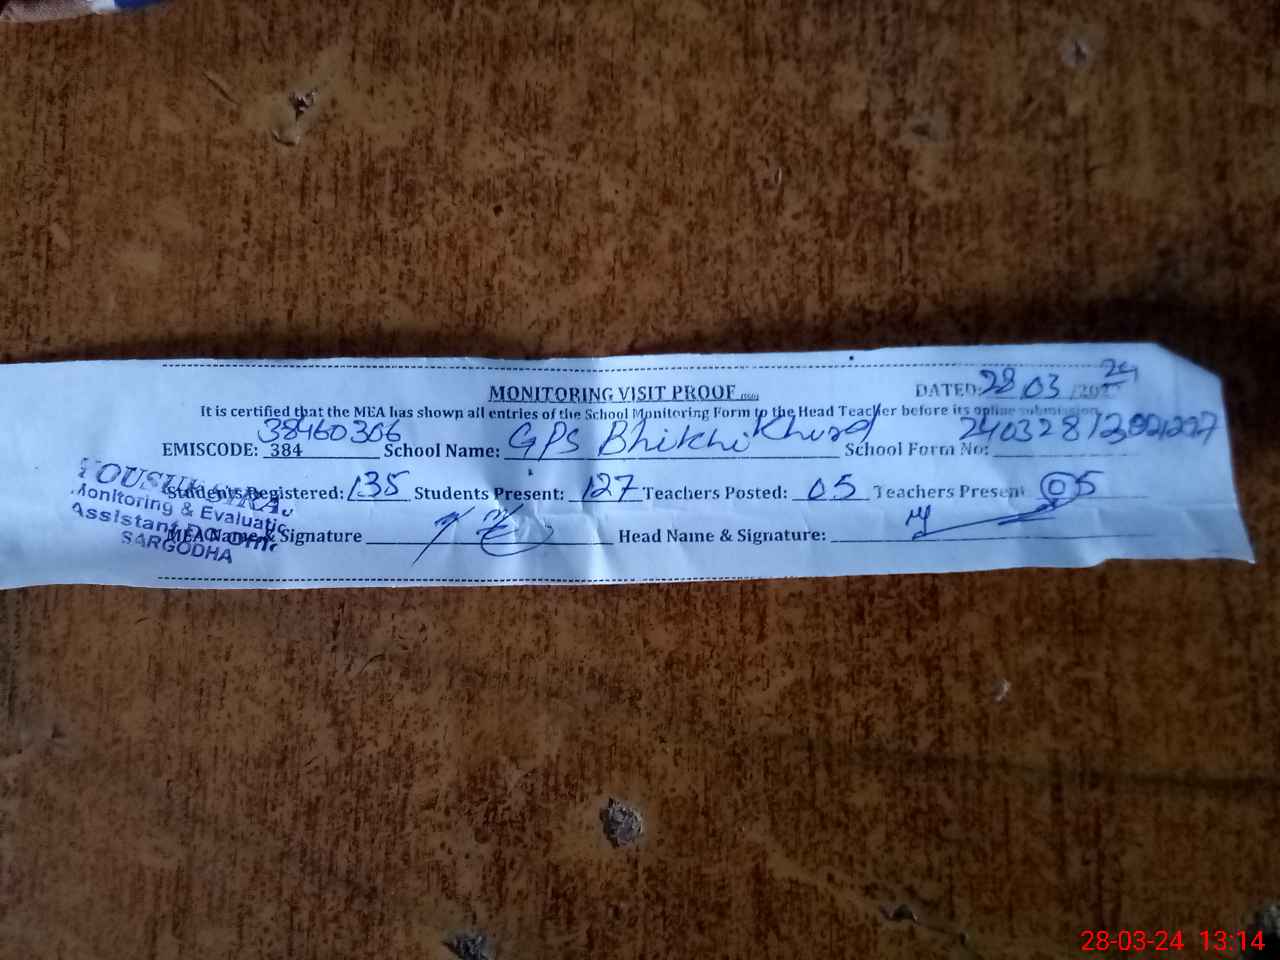 MONITORING VISIT PROOF
DATED: 28 03 /202 24
It is certified that the MEA has shown all entries of the School Monitoring Form to the Head Teacher before its online submission
EMISCODE: 384 38460306 School Name: GPS Bhikhi Khurd School Form No:
Students Registered: 135 Students Present: 127 Teachers Posted: 05 Teachers Present 05
MEA Name & Signature Head Name & Signature:
Monitoring & Evaluatio
Assistant
SARGODHA
28-03-24 13:14